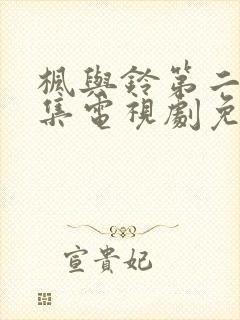 楓與鈴第二
集電視劇免
宣貴妃